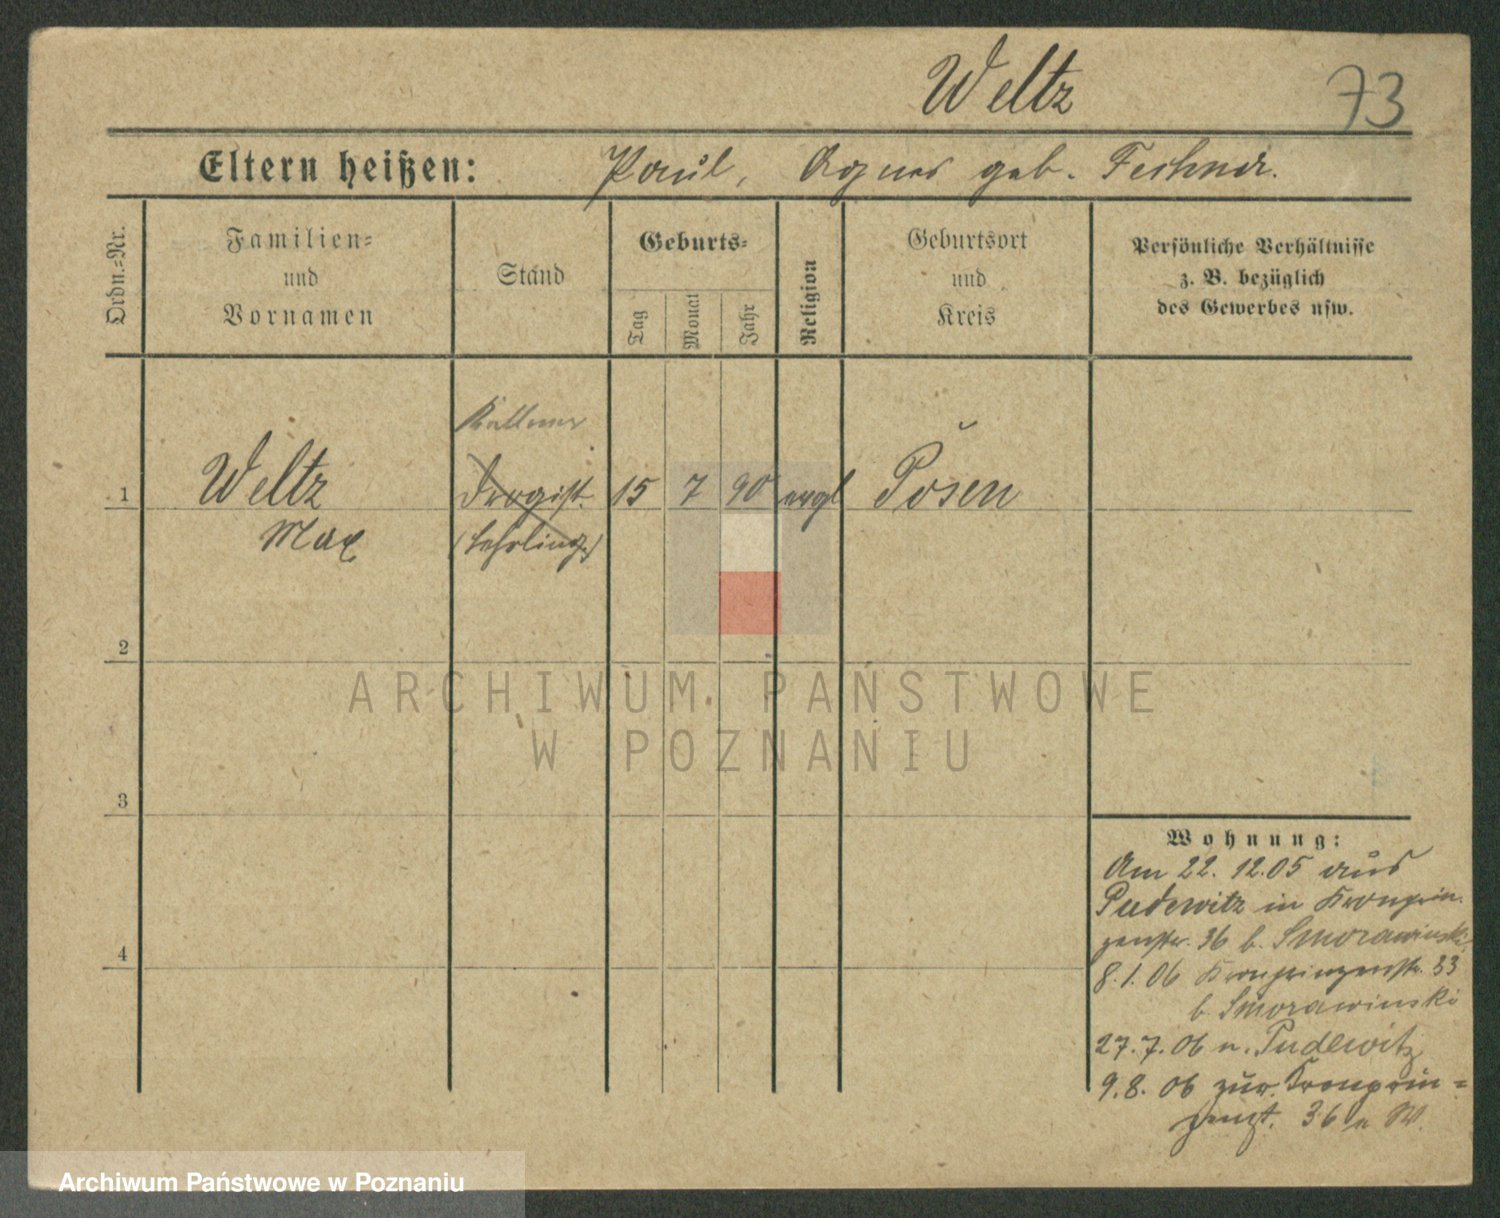 Weltz 73
Eltern heißen: Paul, Agnes geb. Fechner.
Ordn.-Nr.
Familien-
und
Vornamen
Stand
Geburts-
Tag
Monat
Jahr
Religion
Geburtsort
und
Kreis
Persönliche Verhältnisse
z. B. bezüglich
des Gewerbes usw.
Kellner
1 Weltz Drogist. 15 7 90 evgl Posen
Max (Lehrling)
2
ARCHIWUM PAŃSTWOWE
W POZNANIU
3
4
Wohnung:
Am 22. 12.05 aus
Pudewitz in Kronprin-
zenstr. 36 b. Smorawinski
8.1.06 Kronprinzenstr. 33
b. Smorawinski
27.7.06 n. Pudewitz
9.8.06 zur. Kronprin=
36
Archiwum Państwowe w Poznaniu